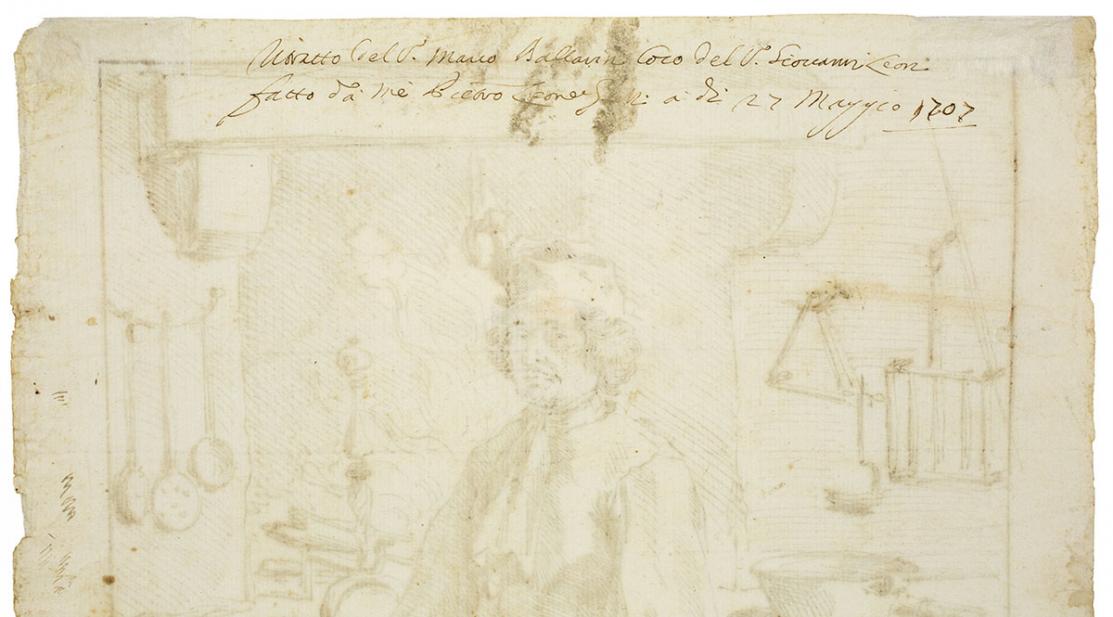 Ritratto del S.r Marco Ballarin Coco del S.r Giovanni Leon
fatto da me Pietro Leone a di 27 Maggio 1707